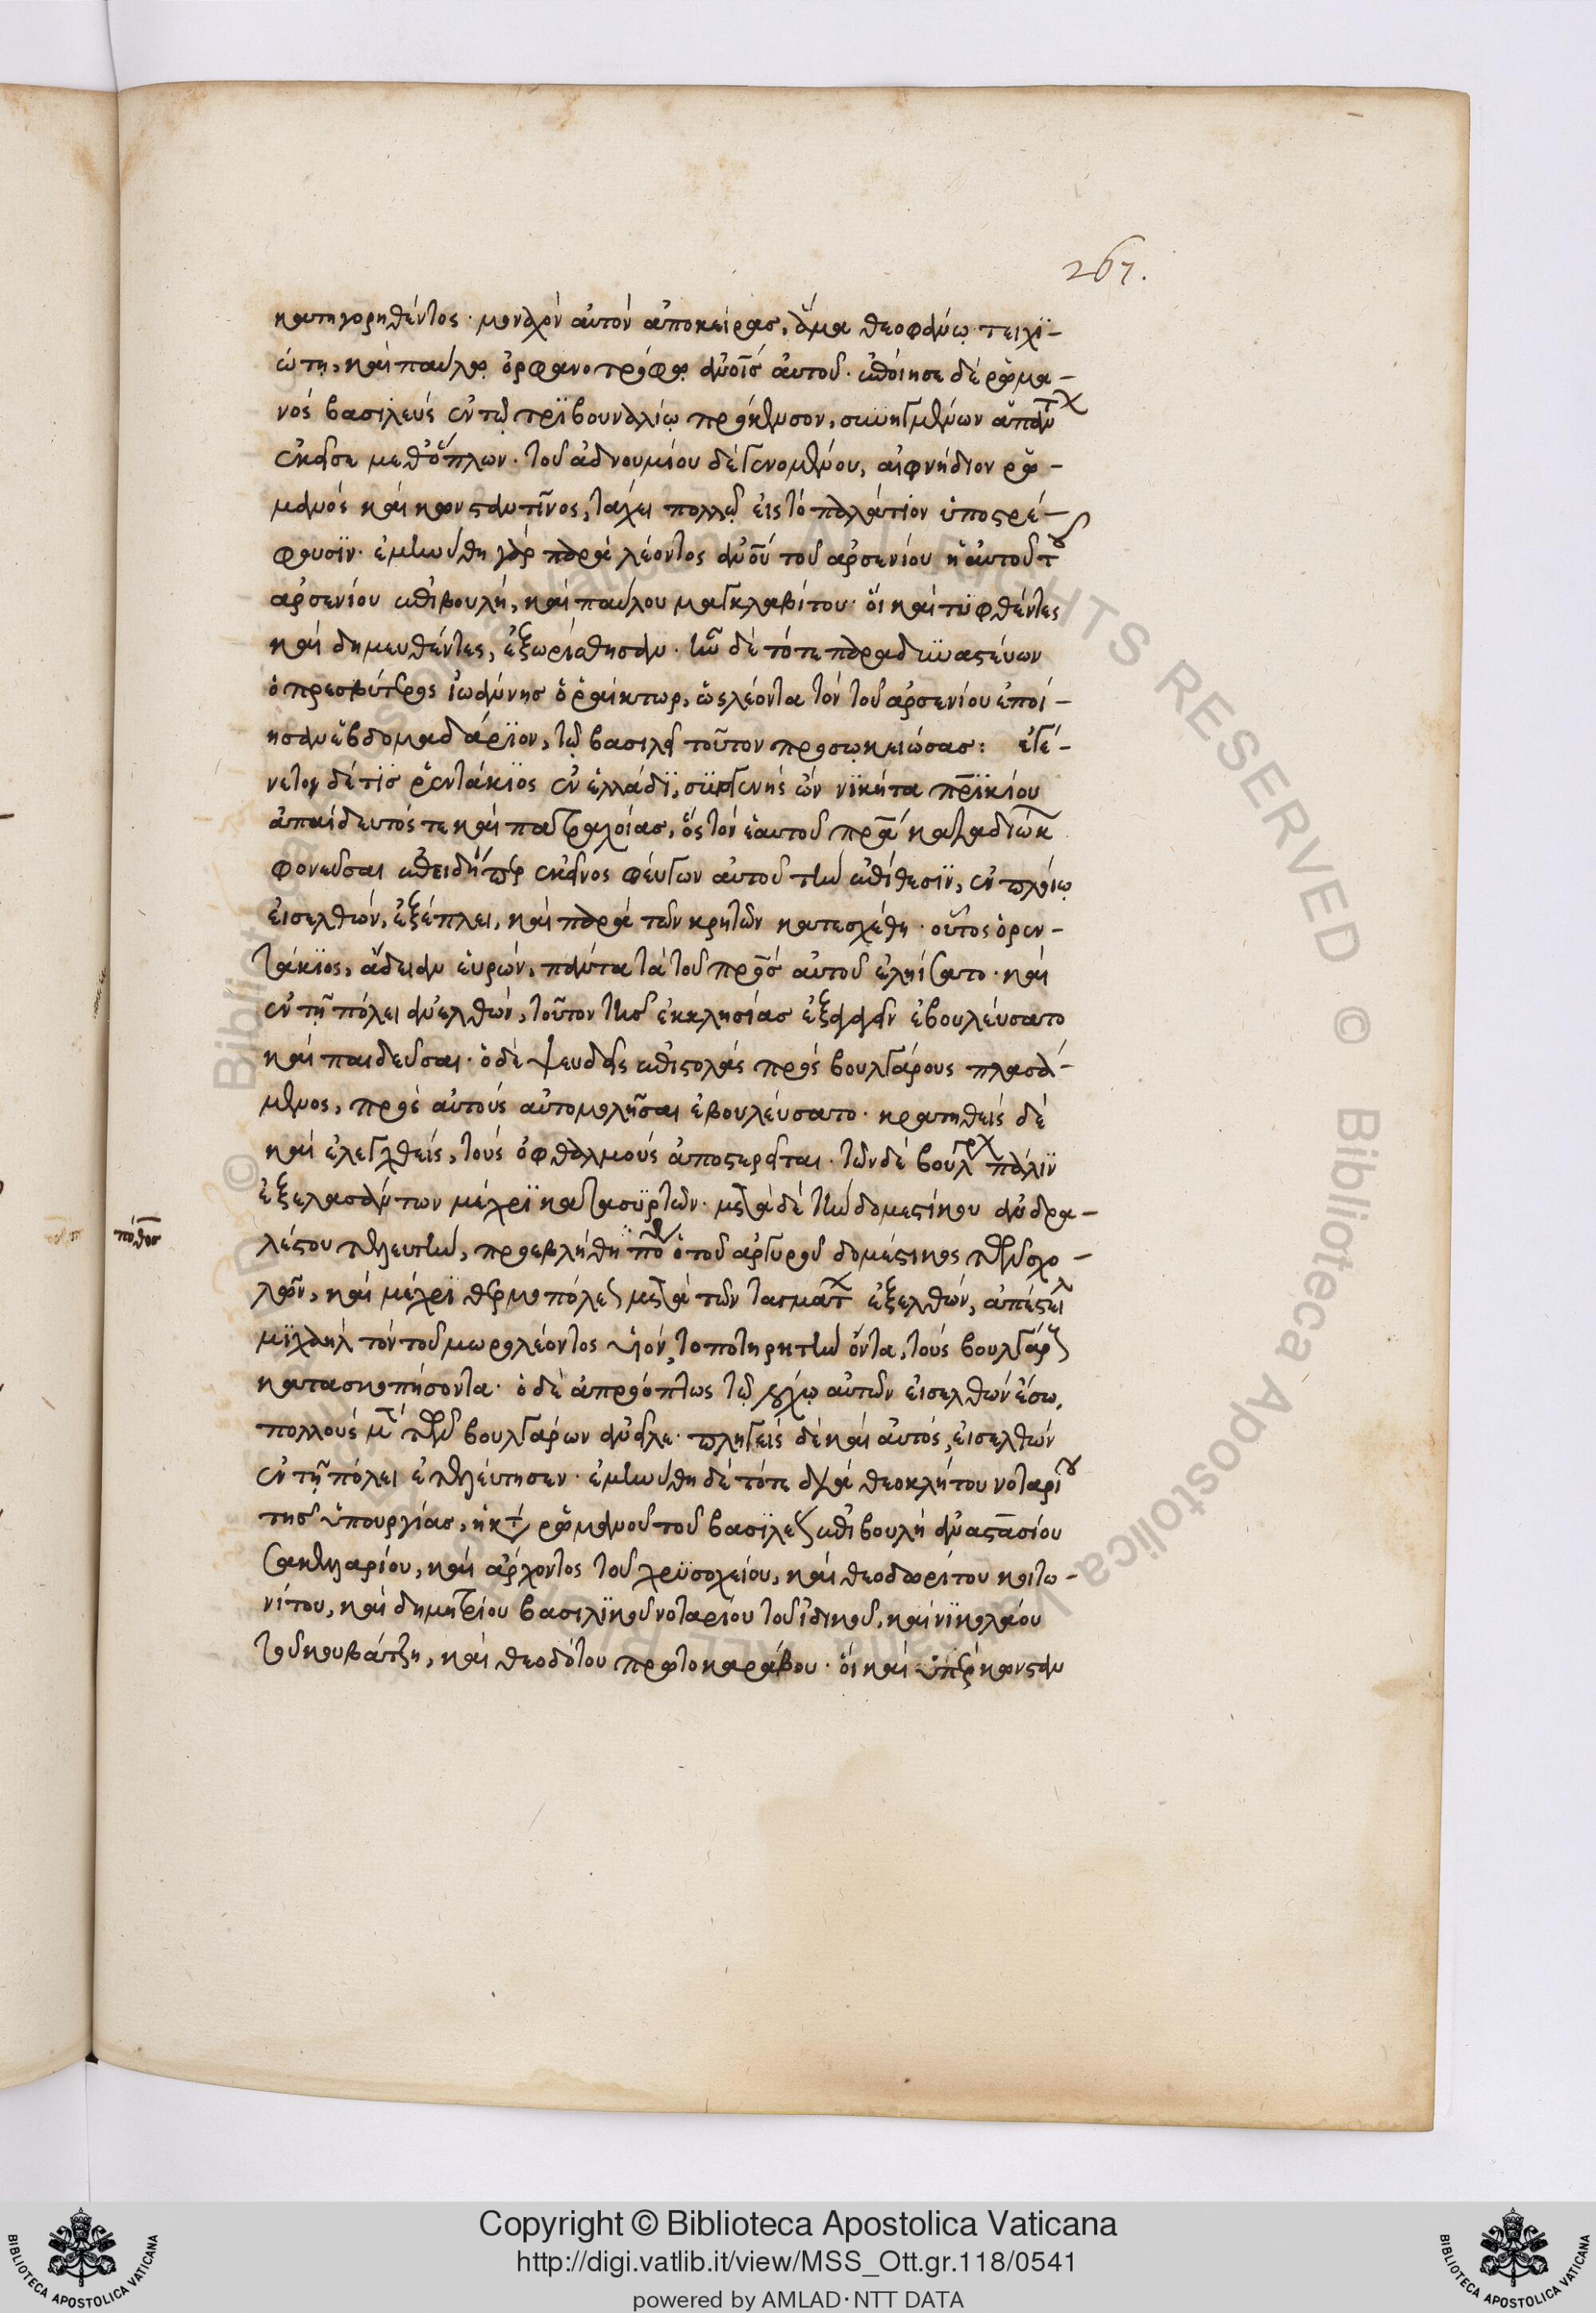 267.
κατηγορηθέντος· μοναχὸν αὐτὸν ἀποκείρας, ἅμα θεοφάνῳ τειχϊ-
ώτῃ, καὶ παύλῳ ὀρφανοτρόφῳ ἀνοῖς αὐτοῦ. ἐποίησε δὲ ῥωμα-
νὸς βασιλεὺς ἐν τῷ τριβουναλίῳ πρόκενσον, συνηγμένων ἁπάντ
ἐκεῖσε μεθ' ὅπλων. τοῦ ἀδνουμίου δὲ γενομένου, αἰφνήδιον ῥω-
μανὸς καὶ κωνσταντῖνος, τάχει πολλῷ εἰς τὸ παλάτιον ὑποστρέ-
φουσϊν. ἐμηνύθη γὰρ παρὰ λέοντος ἀνοῦ τοῦ ἀρσενίου ἡ αὐτοῦ τ
ἀρσενίου ἐπιβουλὴ, καὶ παύλου μαγκλαβίτου· οἳ καὶ τυφθέντες
καὶ δημευθέντες, ἐξωρίσθησαν. ἦν δὲ τότε παραδυναστεύων
ὁ πρεσβύτερος ἰωάννης ὁ ῥαίκτωρ, ὡς λέοντα τὸν τοῦ ἀρσενίου ἐποί-
ησαν ἑβδομαδάριον, τῷ βασιλεῖ τοῦτον προσῳκειώσας: ἐγέ-
νετο δέ τϊς ῥεντάκϊος ἐν ἑλλάδϊ, συγγενὴς ὢν νϊκήτα πρϊκίου
ἀπαίδευτός τε καὶ πατραλοίας, ὃς τὸν ἑαυτοῦ πρα κατεδίωκ
φονεῦσαι ἐπειδήπερ ἐκεῖνος φεύγων αὐτοῦ τὴν ἐπίθεσϊν, ἐν πλοίῳ
εἰσελθὼν, ἐξέπλει, καὶ παρὰ τῶν κρητῶν κατεσχέθη. οὗτος ὁ ρεν-
τάκϊος, ἄδειαν εὑρὼν, πάντα τὰ τοῦ πρς αὐτοῦ ἐληίσατο. καὶ
ἐν τῇ πόλει ἀνελθὼν, τοῦτον τῆς ἐκκλησίας ἐξαγαγεῖν ἐβουλεύσατο
καὶ παιδεῦσαι. ὁ δὲ ψευδεῖς ἐπιστολὰς πρὸς βουλγάρους πλασά-
μενος, πρὸς αὐτοὺς αὐτομολῆσαι ἐβουλεύσατο. κρατηθεὶς δὲ
καὶ ἐλεγχθεὶς, τοὺς ὀφθαλμοὺς ἀποστερεῖται. τῶν δὲ βουλγρ πάλϊν
ἐξελασάντων μέχρϊ κατασυρτῶν. μετὰ δὲ τὴν δομεστίκου ἀνδρα-
ποθος
λέστου τελευτὴν, προεβλήθη πόθ ὁ τοῦ ἀργυροῦ δομέστικος τῶν σχο-
λῶν, καὶ μέχρϊ θερμοπόλες μετὰ τῶν ταγμάτ ἐξελθὼν, ἀπέστειλ
μϊχαὴλ τὸν τοῦ μωρολέοντος υἱὸν, τοποτηρητὴν ὄντα, τοὺς βουλγάρς
κατασκοπήσοντα. ὁ δὲ ἀπροόπτως τῷ λόχῳ αὐτῶν εἰσελθὼν ἔσω,
πολλοὺς μ τῶν βουλγάρων ἀνεῖλε. πληγεὶς δὲ καὶ αὐτὸς, εἰσελθὼν
ἐν τῇ πόλει ἐτελεύτησεν. ἐμηνύθη δὲ τότε διὰ θεοκλήτου νοταρίου
τῆς ὑπουργίας, ἡ κτ ῥωμανοῦ τοῦ βασϊλες ἐπιβουλὴ ἀναστασίου
σακελλαρίου, καὶ ἄρχοντος τοῦ χρυσοχείου, καὶ θεοδωρίτου κοιτω-
νίτου, καὶ δημητρίου βασιλϊκοῦ νοταρίου τοῦ ἰδικοῦ, καὶ νϊκολάου
τοῦ κουβάτζη, καὶ θεοδότου πρωτοκαράβου. οἳ καὶ ὑπὲρ κωνσταν
Copyright © Biblioteca Apostolica Vaticana
http://digi.vatlib.it/view/MSS_Ott.gr.118/0541
powered by AMLAD·NTT DATA